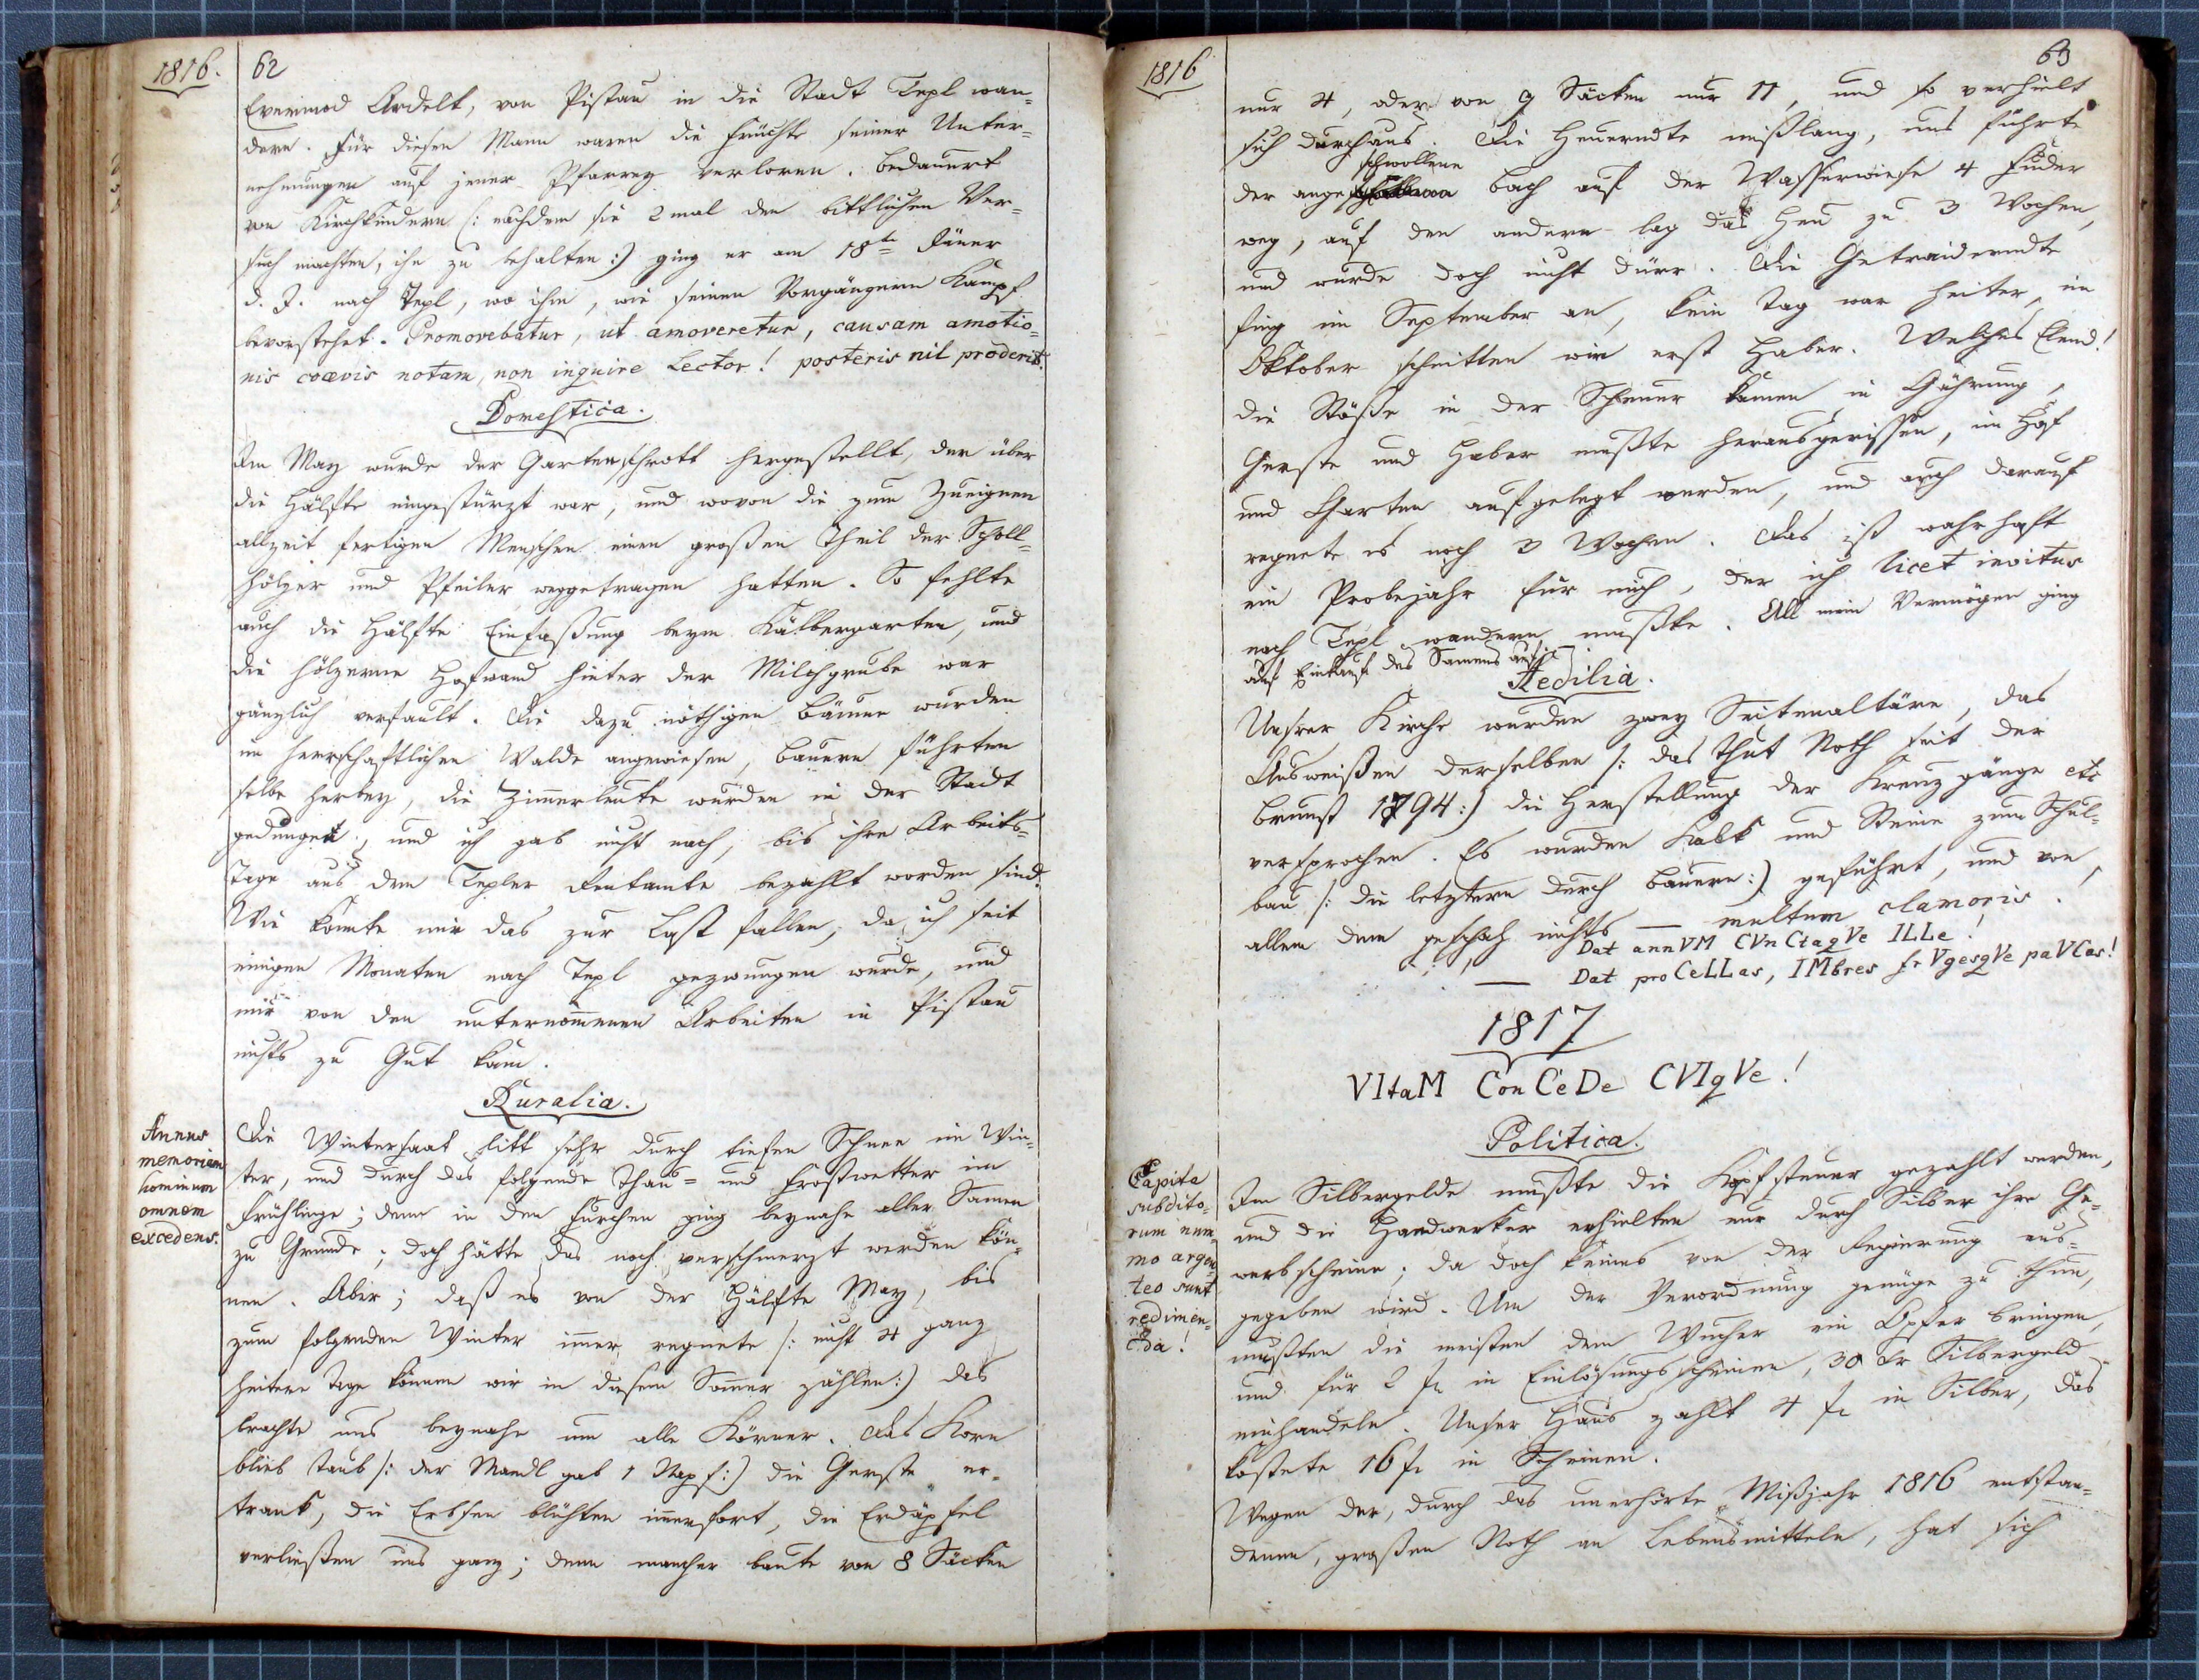 1816.
62
Evermod Ardelt, von Pistau in die Stadt Tepl wan=
dern. Für diesen Mann waren die Früchte seiner Unter=
nehmungen auf jener Pfarrey verloren. Bedauert
von Kirchkindern (: nachdem sie 2mal den bittlichen Ver=
such machten, ihn zu behalten :) ging er am 18te Jäner
d. J. nach Tepl, wo ihm, wie seinen Vorgängern Kampf
bevorstehet. Promovebatur, ut amoveretur, causam amotio=
nis coævis notam, non inquire Lector! posteris nil proderit.
Domestica.
Im May wurde der Gartenschrott hergestellt, der über
die Hälfte eingestürzt war, und wovon die zum Zueignen
allzeit fertigen Menschen einen großen Theil der Schroll=
hölzer und Pfeiler weggetragen hatten. So fehlte
auch die Hälfte Einfaßung beym Kälbergarten, und
die hölzerne Hofwand hinter der Milchgrube war
gänzlich verfault. Die dazu nöthigen Bäume wurden
im herrschaftlichen Walde angewiesen, Bauern führten
selbe herbey, die Zimmerleute wurden in der Stadt
gedungen, und ich gab nicht nach, bis ihre Arbeits=
tage aus dem Tepler Rentamte bezahlt worden sind.
Wie konnte mir das zur Last fallen, da ich seit
einigen Monaten nach Tepl gezwungen wurde, und
mir von den unternommenen Arbeiten in Pistau
nichts zu Gut kam.
Ruralia.
Annus
memoriam
hominum
omnem
excedens.
Die Wintersaat litt sehr durch tiefen Schnee im Win=
ter, und durch das folgende Thau= und Frostwetter im
Frühlinge; denn in den Furchen ging beynahe aller Samen
zu Grunde; doch hätte das noch verschmerzt werden kön=
nen. Aber; daß es von der Hälfte May, bis
zum folgenden Winter immer regnete /: nicht 4 ganz
heitere Tage können wir in diesem Sommer zählen :) das
brachte uns beynahe um alle Körner. Das Korn
blieb taub /: der Mandl gab 1 Napf :) die Gerste er=
trank, die Erbsen blühten immerfort, die Erdäpfel
verließen uns ganz; denn mancher baute von 8 Säcken
1816
63
nur 4, oder von 9 Säcken nur 11, und so verhielt
sich durchaus. Die Heuerndte mißlang, uns führte
schwollene
der ange Bach auf der Wasserwiese 4 Fuder
weg, auf den andern lag das Heu zu 3 Wochen,
und wurde doch nicht dürr. Die Getraiderndte
fing im September an, kein Tag war heiter, im
Oktober schnitten wir erst Haber. Welches Elend!
Die Stöße in der Scheuer kamen in Gährung,
Gerste und Haber mußte herausgerissen, im Hof
und Garten aufgelegt werden, und auch darauf
regnete es noch 3 Wochen. Das ist wahrhaft
ein Probejahr für mich, der ich licet invitus
nach Tepl wandern mußte. All mein Vermögen ging
auf Einkauf des Samens auf.
Aedilia.
Unsrer Kirche wurden zwey Seitenaltäre, das
Ausweißen derselben /: das thut Noth seit der
Brunst 1794 :) die Herstellung der Kreuzgänge etc
versprochen. Es wurden Kalk und Steine zum Schul=
bau /: die letztern durch Bauern :) geführt, und von
allem dem geschah nichts — multum clamoris.
Dat annVM CVnCtaqVe ILLe!
— Dat proCeLLas, IMbres frVgesqVe paVCas!
1817
VItaM ConCeDe CVIqVe!
Politica.
Capita
subdito=
rum num
mo argen
teo sunt
redimen=
da!
Im Silbergelde mußte die Kopfsteuer gezahlt werden,
und die Handwerker erhielten nur durch Silber ihre Ge=
werbscheine; da doch keines von der Regierung aus=
gegeben wird. Um der Verordnung genüge zu thun,
mußten die meisten dem Wucher ein Opfer bringen,
und für 2 fl in Einlösungsscheinen, 30 kr Silbergeld
einhandeln. Unser Haus zahlt 4 fl in Silber, das
kostete 16 fl in Scheinen.
Wegen der, durch das unerhörte Mißjahr 1816 entstan=
denen, großen Noth an Lebensmitteln, hat sich